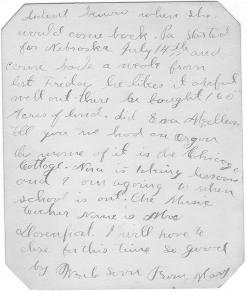 didnt know when she
would come back. Pa started
for Nebraska July 14th and
came back a week from
last Friday he likes it
well out there he bought 160
acres of land. did Eva
tell you we had an Organ
the name of it is the Chicago
Cottage. Nora is taking lessons
and I am agoing to when
school is out. the Music
teacher Name is Mrs
Davenport. I will have to
close for this time So good
by Write Soon From Mary